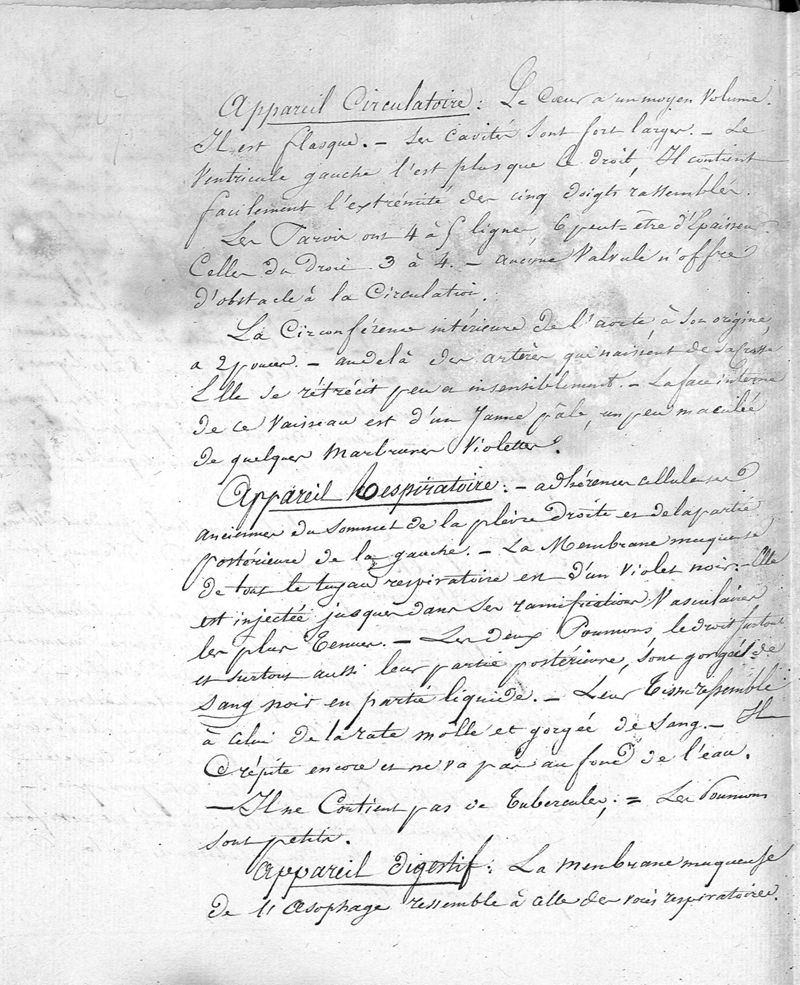 Appareil Circulatoire: Le Cœur a un moyen volume.
Il est flasque. – Ses Cavités sont fort larges. – Le
Ventricule gauche l'est plus que le droit, Il contient
facilement l'extrémité des cinq doigts rassemblés.
Les Parois ont 4 à 5 lignes, 6 peut-être d'Epaisseur.
Celles du Droit 3 à 4. – aucune Valvule n'offre
d'obstacle à la Circulation.
La Circonférence intérieure de l'aorte, à son origine,
a 2 pouces. – au delà des artères qui naissent de sa crosse
Elle se rétrécit peu a insensiblement. – La face interne
de ce Vaisseau est d'un Jaune pâle, un peu maculée
de quelques Marbrures Violettes.
Appareil Respiratoire: – adhérences celluleuses
anciennes du sommet de la plèvre droite et de la partie
postérieure de la gauche. – La Membrane muqueuse
de tout le tuyau respiratoire est d'un violet noir. – Elle
est injectée jusques dans ses ramifications Vasculaires
les plus Tenues. – Les deux Poumons, le droit surtout
et surtout aussi leur partie postérieure, sont gorgés de
sang noir en partie liquide. – Leur tissu ressemble
à celui de la rate molle et gorgée de sang. – Il
Crépite encore et ne va pas au fond de l'eau.
– Il ne Contient pas de tubercules; = Les Poumons
sont petits.
Appareil Digestif: La membrane muqueuse
de l'Œsophage ressemble à celle des voies respiratoires.